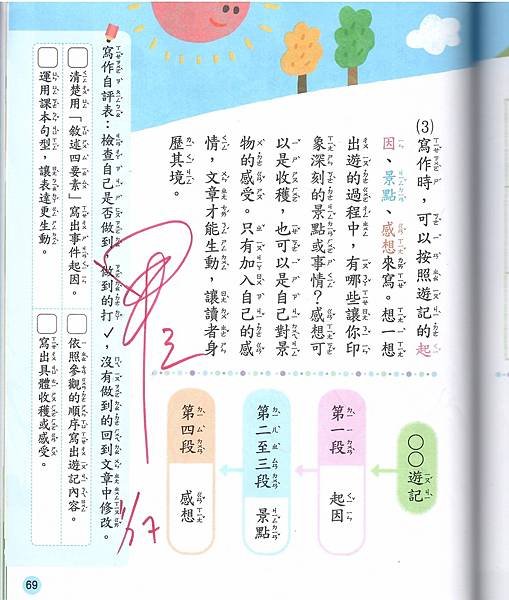 (3)寫作時,可以按照遊記的起
因、景點、感想來寫。想一想
出遊的過程中,有哪些讓你印
象深刻的景點或事情?感想可
以是收穫,也可以是自己對景
物的感受。只有加入自己的感
情,文章才能生動,讓讀者身
歷其境。
○○遊記
第一段 起因
第二至三段 景點
第四段 感想
寫作自評表:檢查自己是否做到,做到的打✓,沒有做到的回到文章中修改。
清楚用「敘述四要素」寫出事件起因。
依照參觀的順序寫出遊記內容。
運用課本句型,讓表達更生動。
寫出具體收穫或感受。
1/17
69